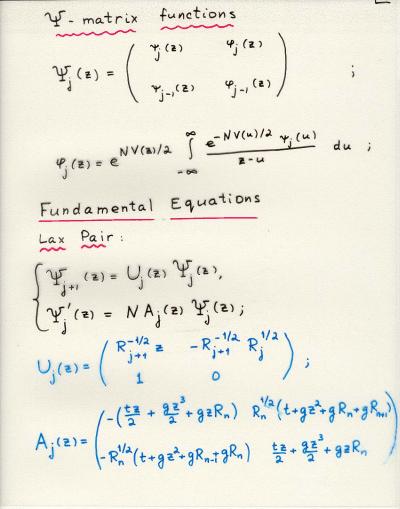 Ψ - matrix functions
Ψ_j(z) = ( ψ_j(z) φ_j(z)
ψ_{j-1}(z) φ_{j-1}(z) ) ;
φ_j(z) = e^{NV(z)/2} ∫_{-∞}^{∞} \frac{e^{-NV(u)/2} ψ_j(u)}{z-u} du ;
Fundamental Equations
Lax Pair:
{ Ψ_{j+1}(z) = U_j(z) Ψ_j(z),
Ψ'_j(z) = N A_j(z) Ψ_j(z);
U_j(z) = ( R_{j+1}^{-1/2} z -R_{j+1}^{-1/2} R_j^{1/2}
1 0 ) ;
A_j(z) = ( -(\frac{tz}{2} + \frac{gz^3}{2} + gzR_n) R_n^{1/2}(t+gz^2+gR_n+gR_{n+1})
-R_n^{1/2}(t+gz^2+gR_{n-1}+gR_n) \frac{tz}{2} + \frac{gz^3}{2} + gzR_n )